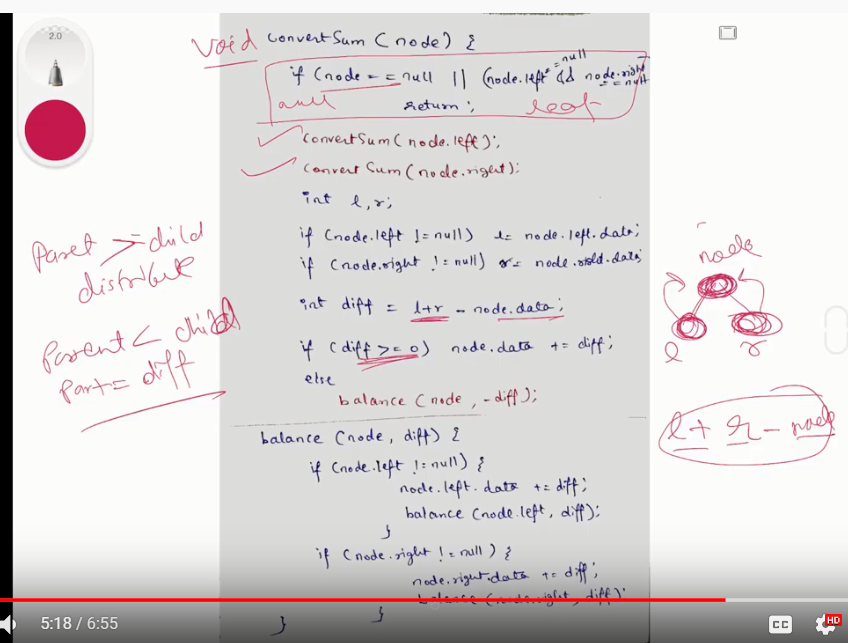 2.0
void convertSum (node) {
if (node == null || (node.left == null && node.right == null
null
leaf
return;
convertSum (node.left);
convertSum (node.right);
int l, r;
if (node.left != null) l = node.left.data;
if (node.right != null) r = node.data;
int diff = l+r - node.data;
if (diff >= 0) node.data += diff;
else
balance (node, -diff);
balance (node, diff) {
if (node.left != null) {
node.left.data += diff;
balance (node.left, diff);
}
if (node.right != null) {
node.right.data += diff;
balance (node.right, diff);
}
}
Paret > child
distribute
Parent < child
part = diff
node
l r
l + r - node
5:18 / 6:55
CC
HD